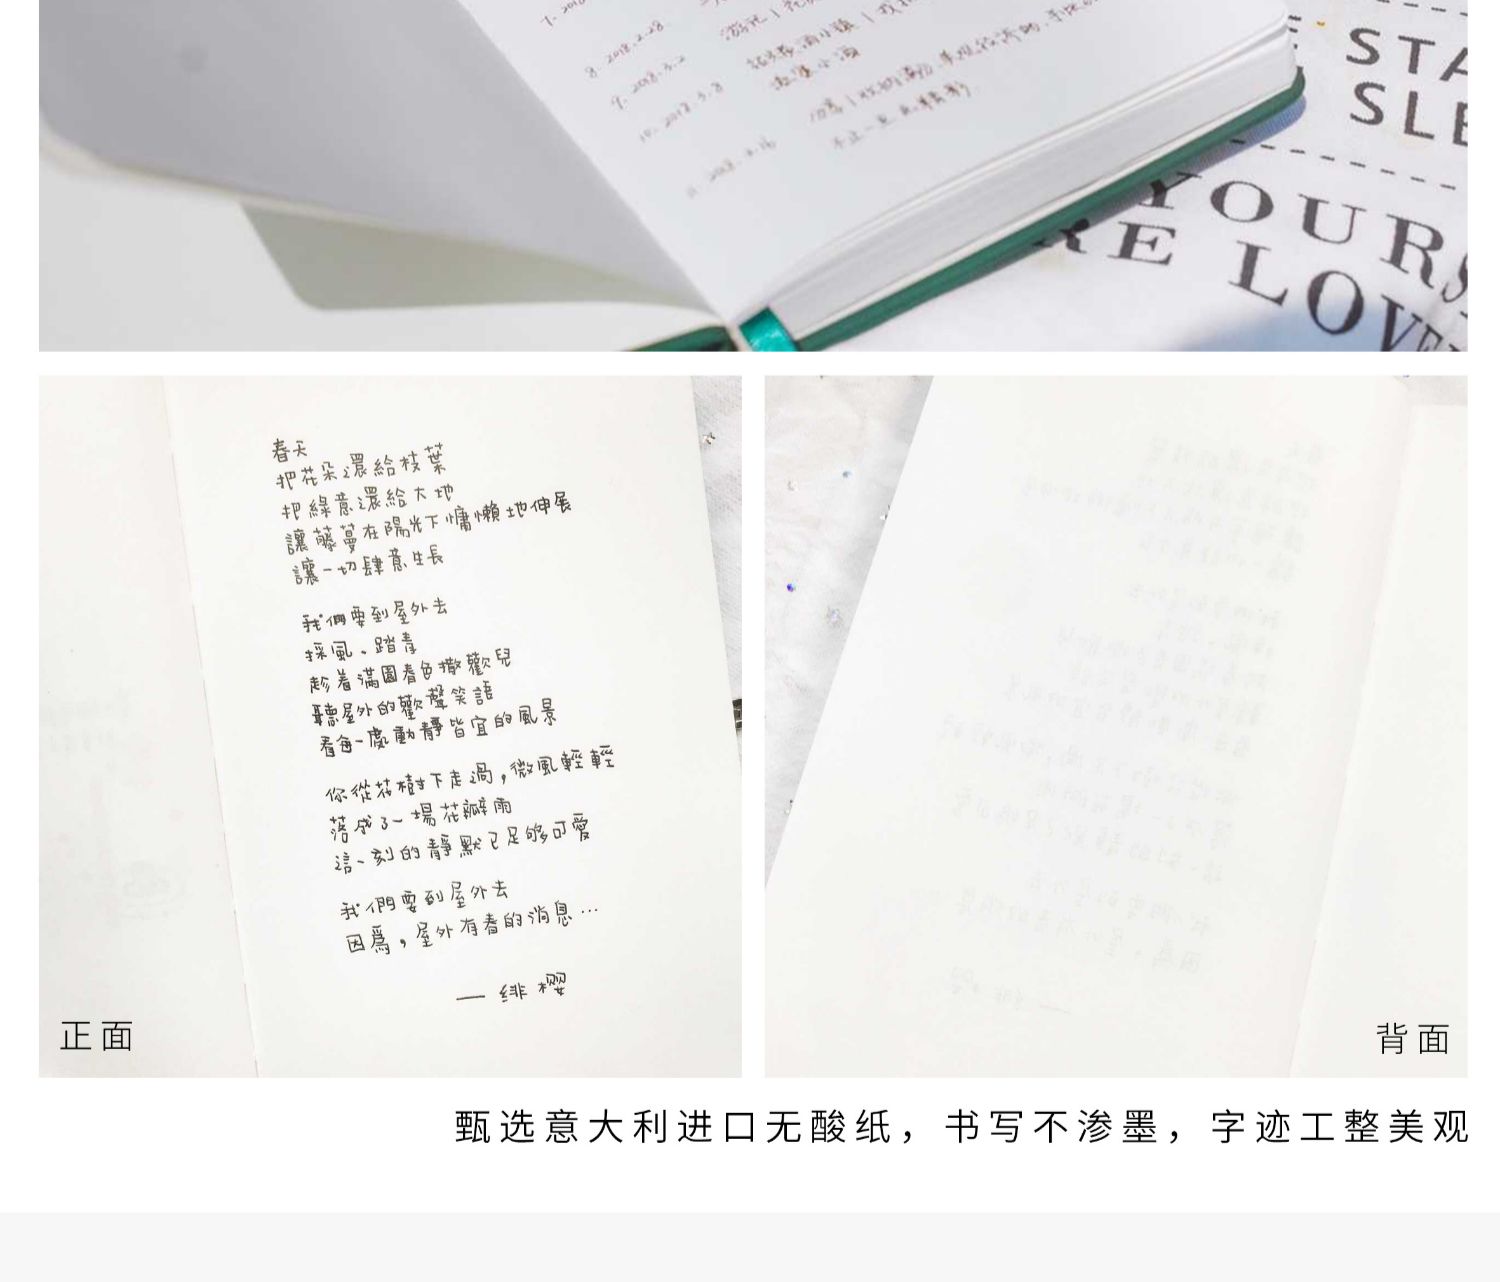 7. 2018
8. 2018.2.28
9. 2018.3.2
10. 2018.3.8
STA
SLE
YOURS
RE LOVE
春天
把花朵還給枝葉
把綠意還給大地
讓藤蔓在陽光下慵懶地伸展
讓一切肆意生長
我們要到屋外去
採風、踏青
趁着滿園春色撒歡兒
聽屋外的歡聲笑語
看每一處動靜皆宜的風景
你從花樹下走過，微風輕輕
落成了一場花瓣雨
這一刻的靜默已足够可愛
我們要到屋外去
因爲，屋外有春的消息…
— 緋樱
正面
背面
甄选意大利进口无酸纸，书写不渗墨，字迹工整美观